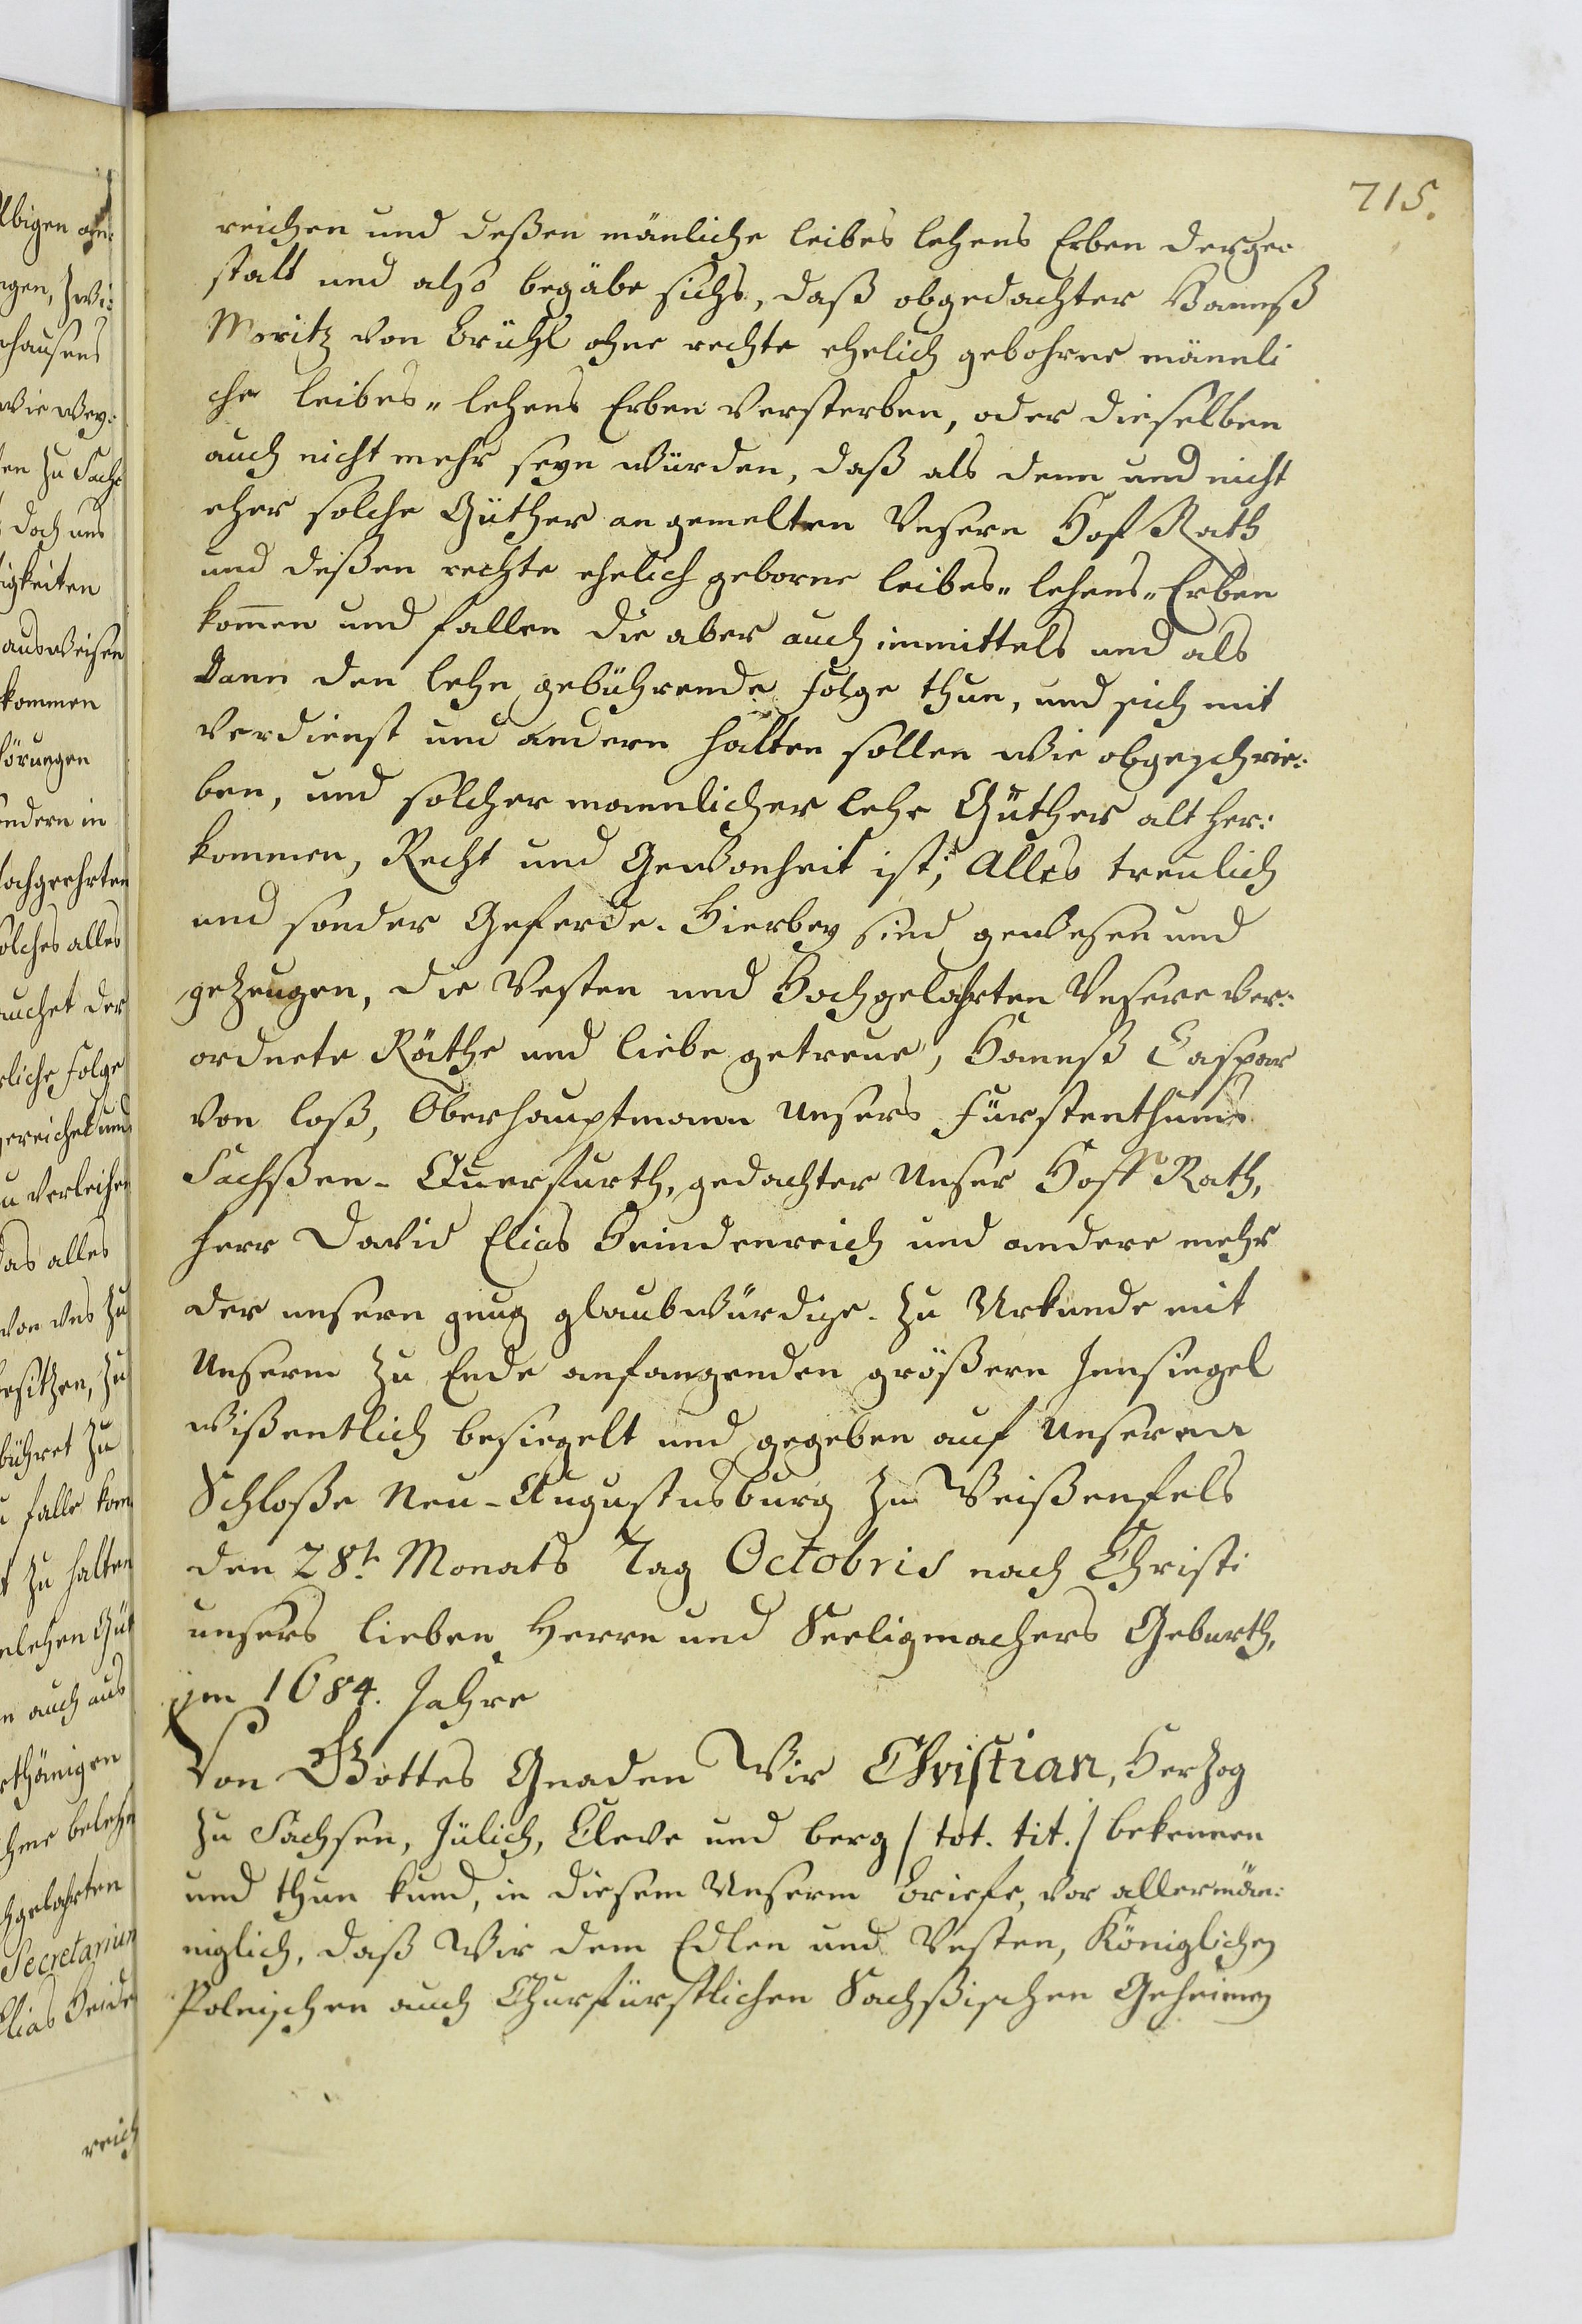 715.
reichen und deßen mänliche leibes lehens Erben derge-
stalt und also begäbe sichs, daß obgedachter Hannß
Moritz von Brühl ohne rechte ehelich gebohrne männli
che leibes- lehens Erben versterben, oder dieselben
auch nicht mehr seyn würden, daß als denn und nicht
eher solche Güther an gemelten Unsern Hof Rath
und deßen rechte ehelich geborne leibes- lehens- Erben
kom̄en und fallen die aber auch immittels und als
dann den lehn gebührende folge thun, und sich mit
verdienst und andern halten sollen wie obgeschrie:
ben, und solcher mannlicher lehe Güther alt her:
kommen, Recht und Gewonheit ist; Alles treulich
und sonder Geferde. Hierbey sind gewesen und
gezeugen, die Vesten und Hochgelahrten Unsere ver:
ordnete Räthe und liebe getreue, Hannß Caspar
von loß, Oberhauptmann Unsers Fürstenthums
Sachßen- Querfurth, gedachter Unser Hoff Rath,
Herr David Elias Heindenreich und andere mehr
der unsern gnug glaubwürdige. Zu Urkunde mit
Unserm zu Ende anfangenden größern Innsiegel
wißentlich besiegelt und gegeben auf Unserm
Schloße Neu-Augustusburg zu Weißenfels
den 28t. Monats Tag Octobris nach Christi
unsers lieben Herrn und Seeligmachers Geburth,
im 1684. Jahre
Von Gottes Gnaden Wir Christian, Herzog
zu Sachsen, Jülich, Cleve und berg /tot. tit./ bekennen
und thun kund, in diesem Unserm Briefe, vor allermän:
niglich, daß Wir dem Edlen und Vesten, Königlichen
Polnischen auch Churfürstlichen Sachßischen Geheimen